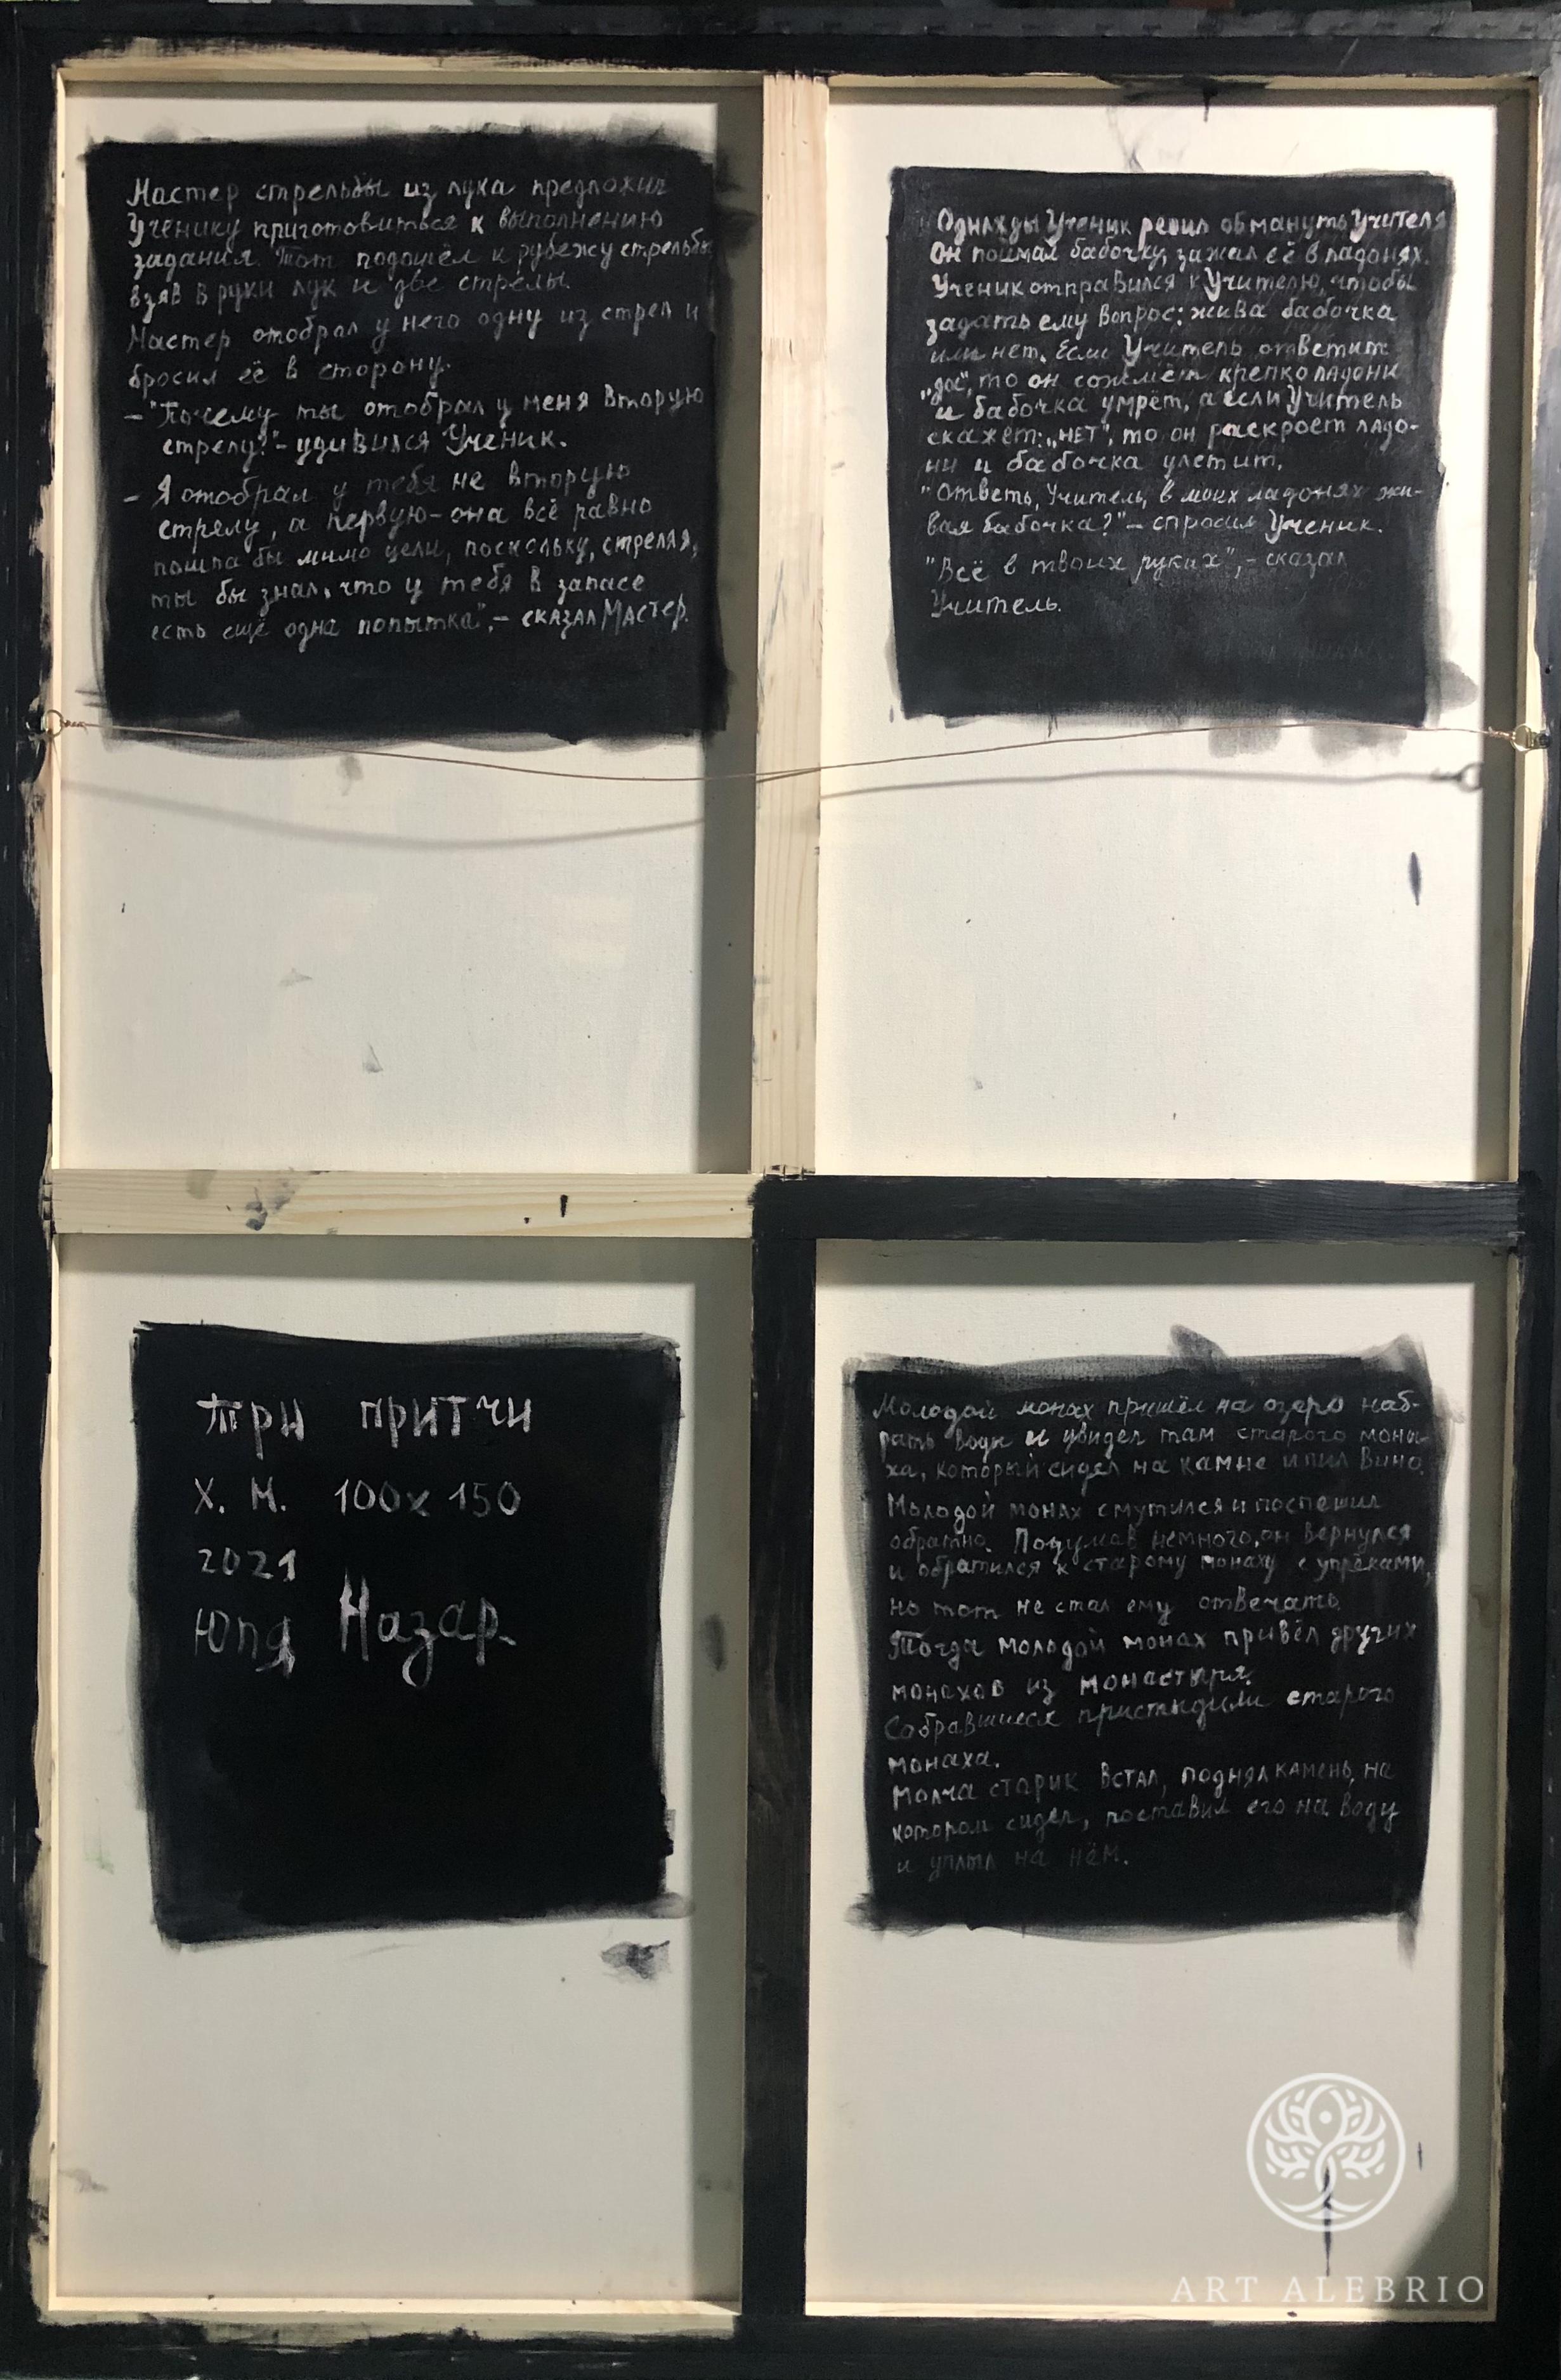 Мастер стрельбы из лука предложил
Ученику приготовиться к выполнению
задания. Тот подошёл к рубежу стрельбы
взяв в руки лук и две стрелы.
Мастер отобрал у него одну из стрел и
бросил её в сторону.
– "Почему ты отобрал у меня вторую
стрелу?" – удивился Ученик.
– Я отобрал у тебя не вторую
стрелу, а первую – она всё равно
пошла бы мимо цели, поскольку, стреляя,
ты бы знал, что у тебя в запасе
есть ещё одна попытка", – сказал Мастер.
Однажды Ученик решил обмануть Учителя
Он поймал бабочку, зажал её в ладонях.
Ученик отправился к Учителю, чтобы
задать ему вопрос: жива бабочка
или нет. Если Учитель ответит
"да", то он сожмёт крепко ладони
и бабочка умрёт, а если Учитель
скажет: „нет", то он раскроет ладо-
ни и бабочка улетит.
"Ответь, Учитель, в моих ладонях жи-
вая бабочка?" – спросил Ученик.
"Всё в твоих руках", – сказал
Учитель.
Три притчи
Х. М. 100х150
2021
Юля Назар.
Молодой монах пришёл на озеро наб-
рать воды и увидел там старого мона-
ха, который сидел на камне и пил вино.
Молодой монах смутился и поспешил
обратно. Подумав немного, он вернулся
и обратился к старому монаху с упрёками,
но тот не стал ему отвечать.
Тогда молодой монах привёл других
монахов из монастыря.
Собравшиеся пристыдили старого
монаха.
Молча старик встал, поднял камень, на
котором сидел, поставил его на воду
и уплыл на нём.
ART ALEBRIO